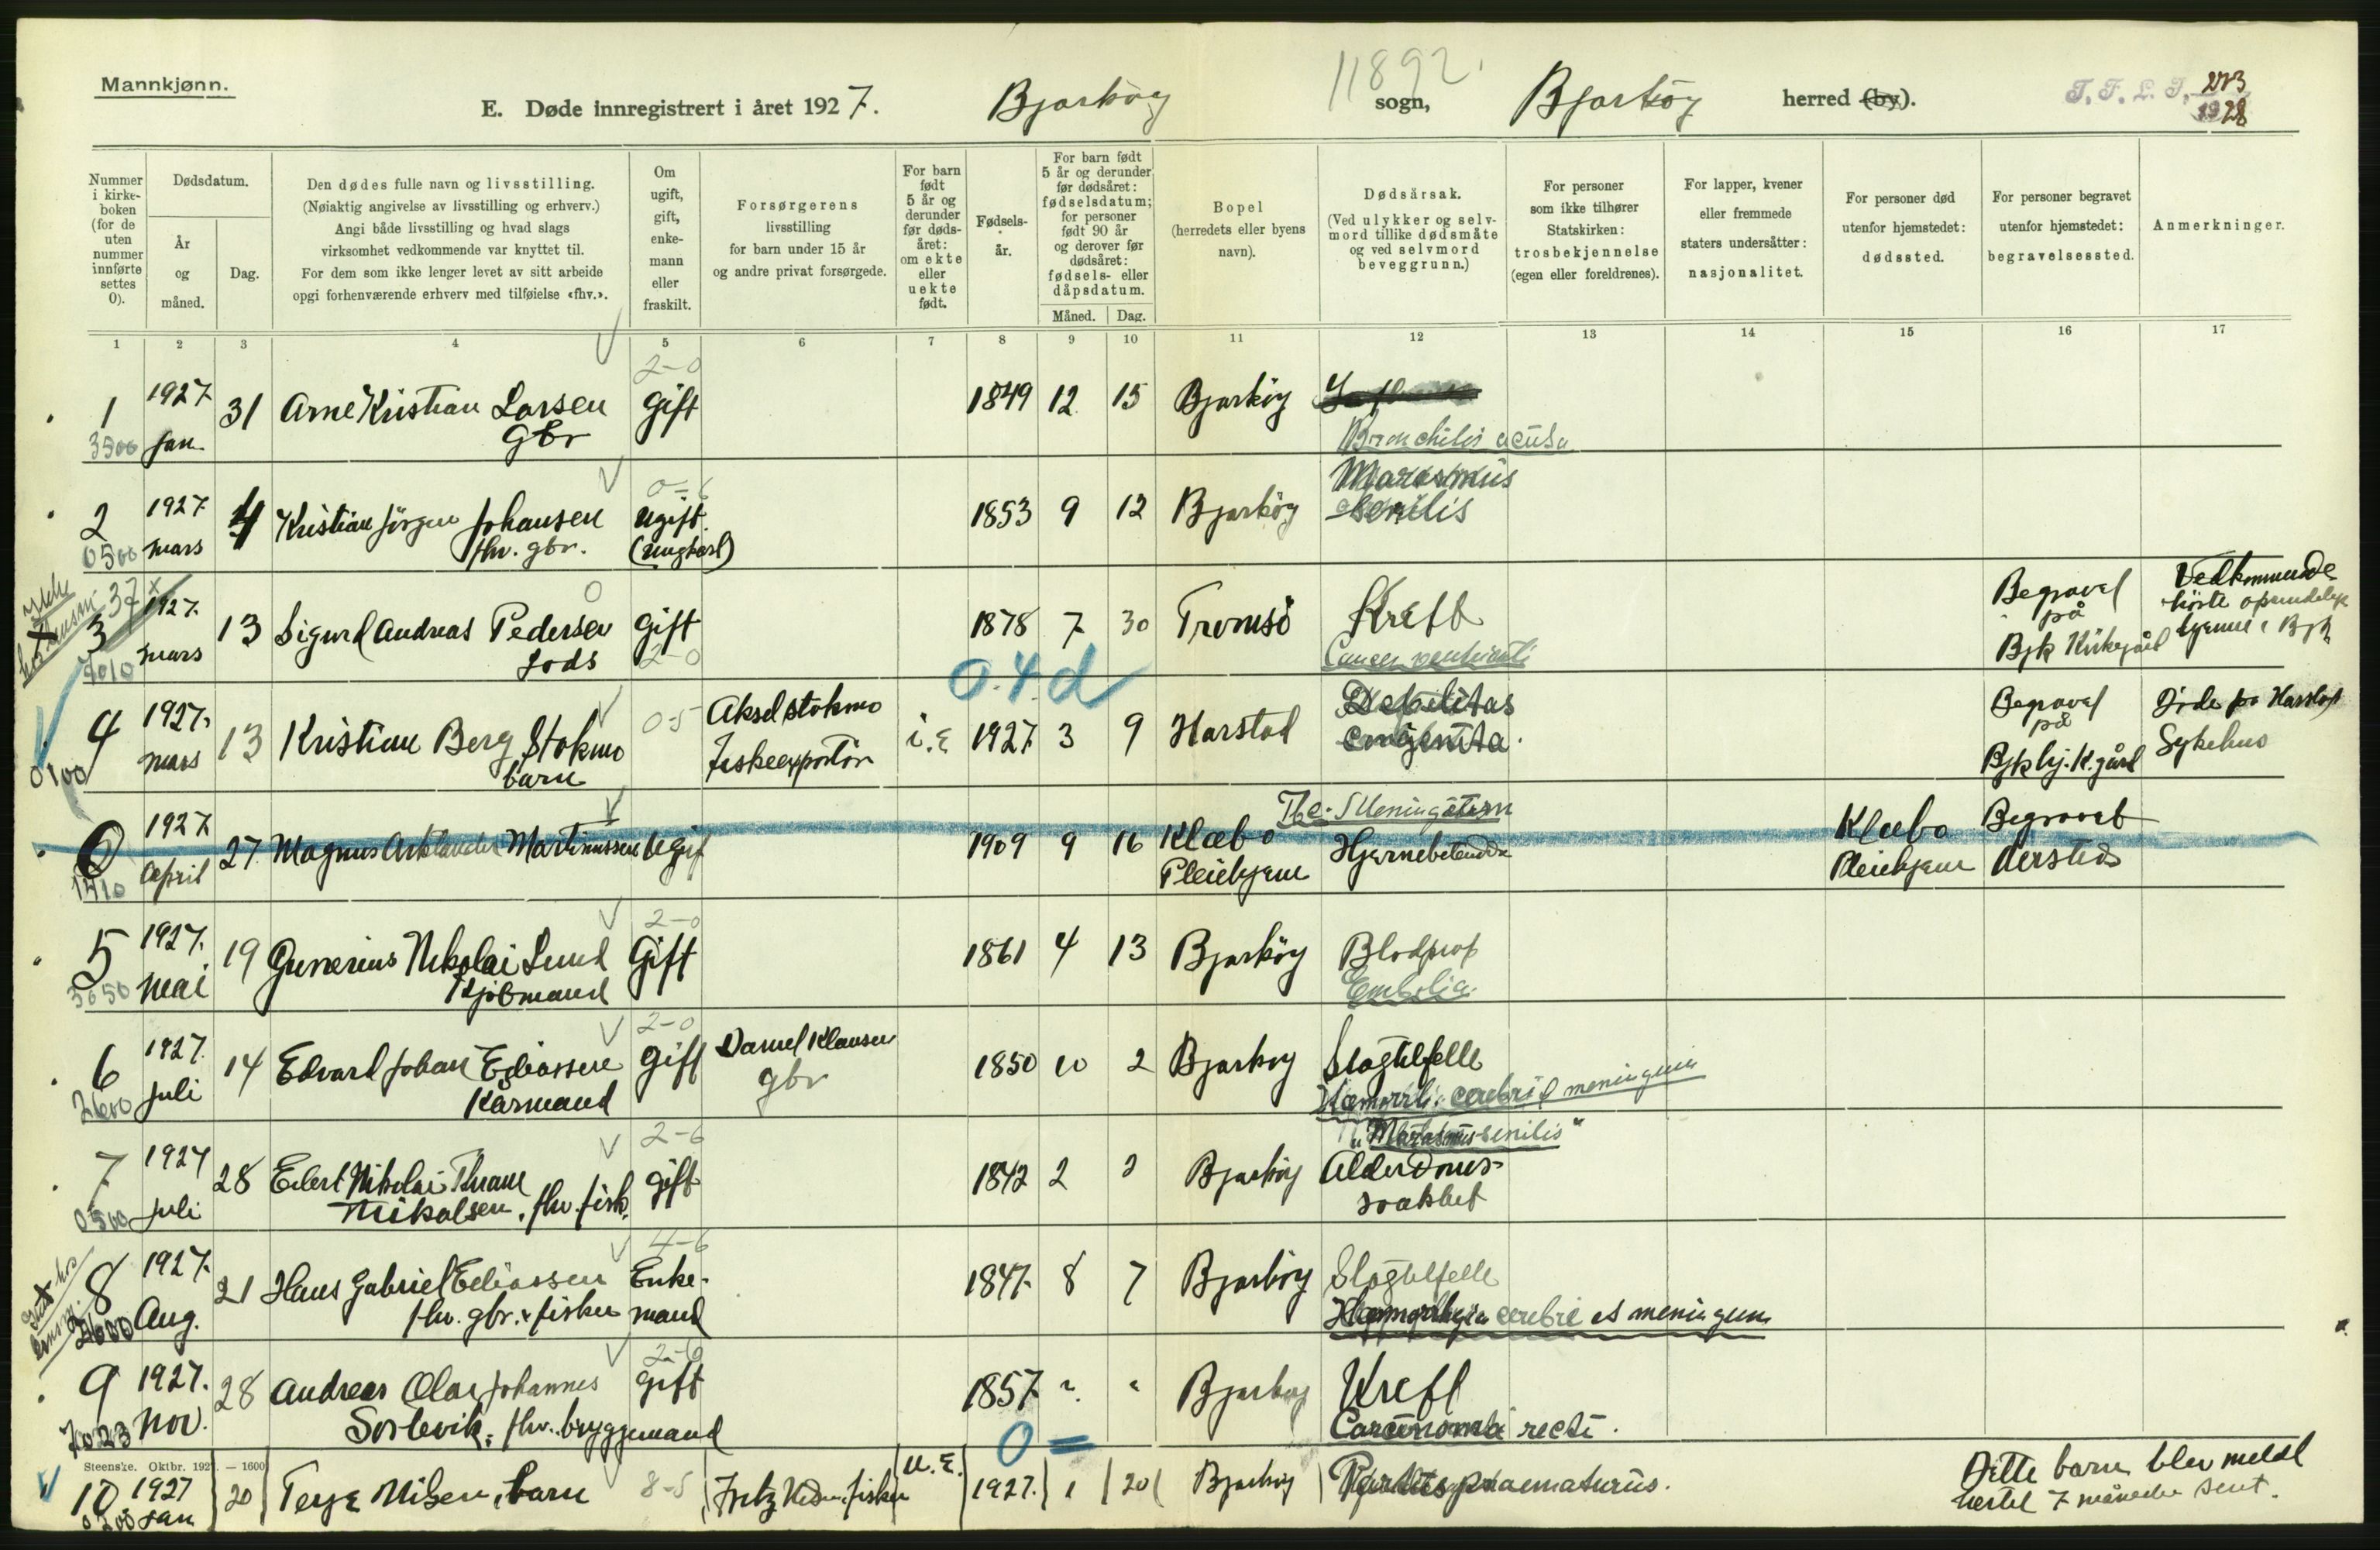 Mannkjønn.
11892.
E. Døde innregistrert i året 1927. Bjarkøy sogn, Bjarkøy herred (by).
T. F. L. J. 273
1928
Nummer i kirke-boken (for de uten nummer innførte settes 0).
Dødsdatum.
År og måned.
Dag.
Den dødes fulle navn og livsstilling.
(Nøiaktig angivelse av livsstilling og erhverv.)
Angi både livsstilling og hvad slags
virksomhet vedkommende var knyttet til.
For dem som ikke lenger levet av sitt arbeide
opgi forhenværende erhverv med tilføielse «fhv.».
Om ugift, gift, enke-mann eller fraskilt.
Forsørgerens
livsstilling
for barn under 15 år
og andre privat forsørgede.
For barn født 5 år og derunder før døds-året: om ekte eller uekte født.
Fødsels-år.
For barn født 5 år og derunder før dødsåret: fødselsdatum; for personer født 90 år og derover før dødsåret: fødsels- eller dåpsdatum.
Måned. Dag.
Bopel
(herredets eller byens
navn).
Dødsårsak.
(Ved ulykker og selv-
mord tillike dødsmåte
og ved selvmord
beveggrunn.)
For personer
som ikke tilhører
Statskirken:
trosbekjennelse
(egen eller foreldrenes).
For lapper, kvener
eller fremmede
staters undersåtter:
nasjonalitet.
For personer død
utenfor hjemstedet:
dødssted.
For personer begravet
utenfor hjemstedet:
begravelsessted.
Anmerkninger.
1 2 3 4 5 6 7 8 9 10 11 12 13 14 15 16 17
2-0
1 1927 jan. 31 Arne Kristian Larsen gbr Gift 1849 12 15 Bjarköy
3500
Bronchitis acuta
0-6
2 1927 mars 4 Kristian Jörgen Johansen fhv. gbr. Ugift. (ungkarl) 1853 9 12 Bjarköy Marasmus senilis
0500
37 x
3 1927. mars 13 Sigurd Andreas Pedersen Gift 1878 7 30 Tromsö Kreft
2-0
9010
Cancer ventriculi
Begravet på Bjk Kirkegård
Vedkommende hörte oprindelig hjemme i Bjk
0.4.d
4 1927. mars 13 Kristian Berg Stokmo barn 0-5 Aksel Stokmo Fiskeexportör i.E 1927 3 9 Harstad Debilitas congenita.
0100
Begravet på Bjk hj. K.gård
Döde på Harstad Sykehus
0 1927 April 27. Magnus Martinussen Ugift 1909 9 16 Klæbo Pleiehjem
1410
Tbc. Meningitism
Hjernebetendelse
Klæbo Pleiehjem
Begravet dersteds
2-0
5 1927. Mai 19 Gunerius Nikolai Lund Kjöbmand Gift 1861 4 13 Bjarköy Blodprop
3650
Embolia.
2-0
6 1927. Juli 14 Edvard Johan Eliassen Kårmand Gift Daniel Klausen gbr 1850 10 2 Bjarköy Slagtilfelle
2600
Hæmorrh. cerebri & meningum
2-6
"Marasmus senilis"
7 1927 Juli 28 Edert Nikolai Nikolaisen, fhv. fisk. gift 1842 2 2 Bjarköy Alderdoms-svakhet
0500
4-6
8 1927. Aug. 21 Hans Gabriel Eliassen fhv. gbr. & fisker Enke-mand 1847. 8 7 Bjarköy Slagtilfelle
2600
Hæmorrhagia cerebri et meningum
2-6
9 1927. Nov. 28 Andreas Olai Johannes Sörlevik, fhv. bryggemand Gift 1857 " " Bjarköy Kreft
7023
Carcinoma recti.
0 =
Steenske. Oktbr. 1927. — 1600
10 1927 Jan 20 Terje Nilsen, barn 8-5 Fritz Nilsen, fisker U.E. 1927. 1 20 Bjarköy Partus praematurus.
0200
Dette barn blev meldt hertil 7 måneder sent.